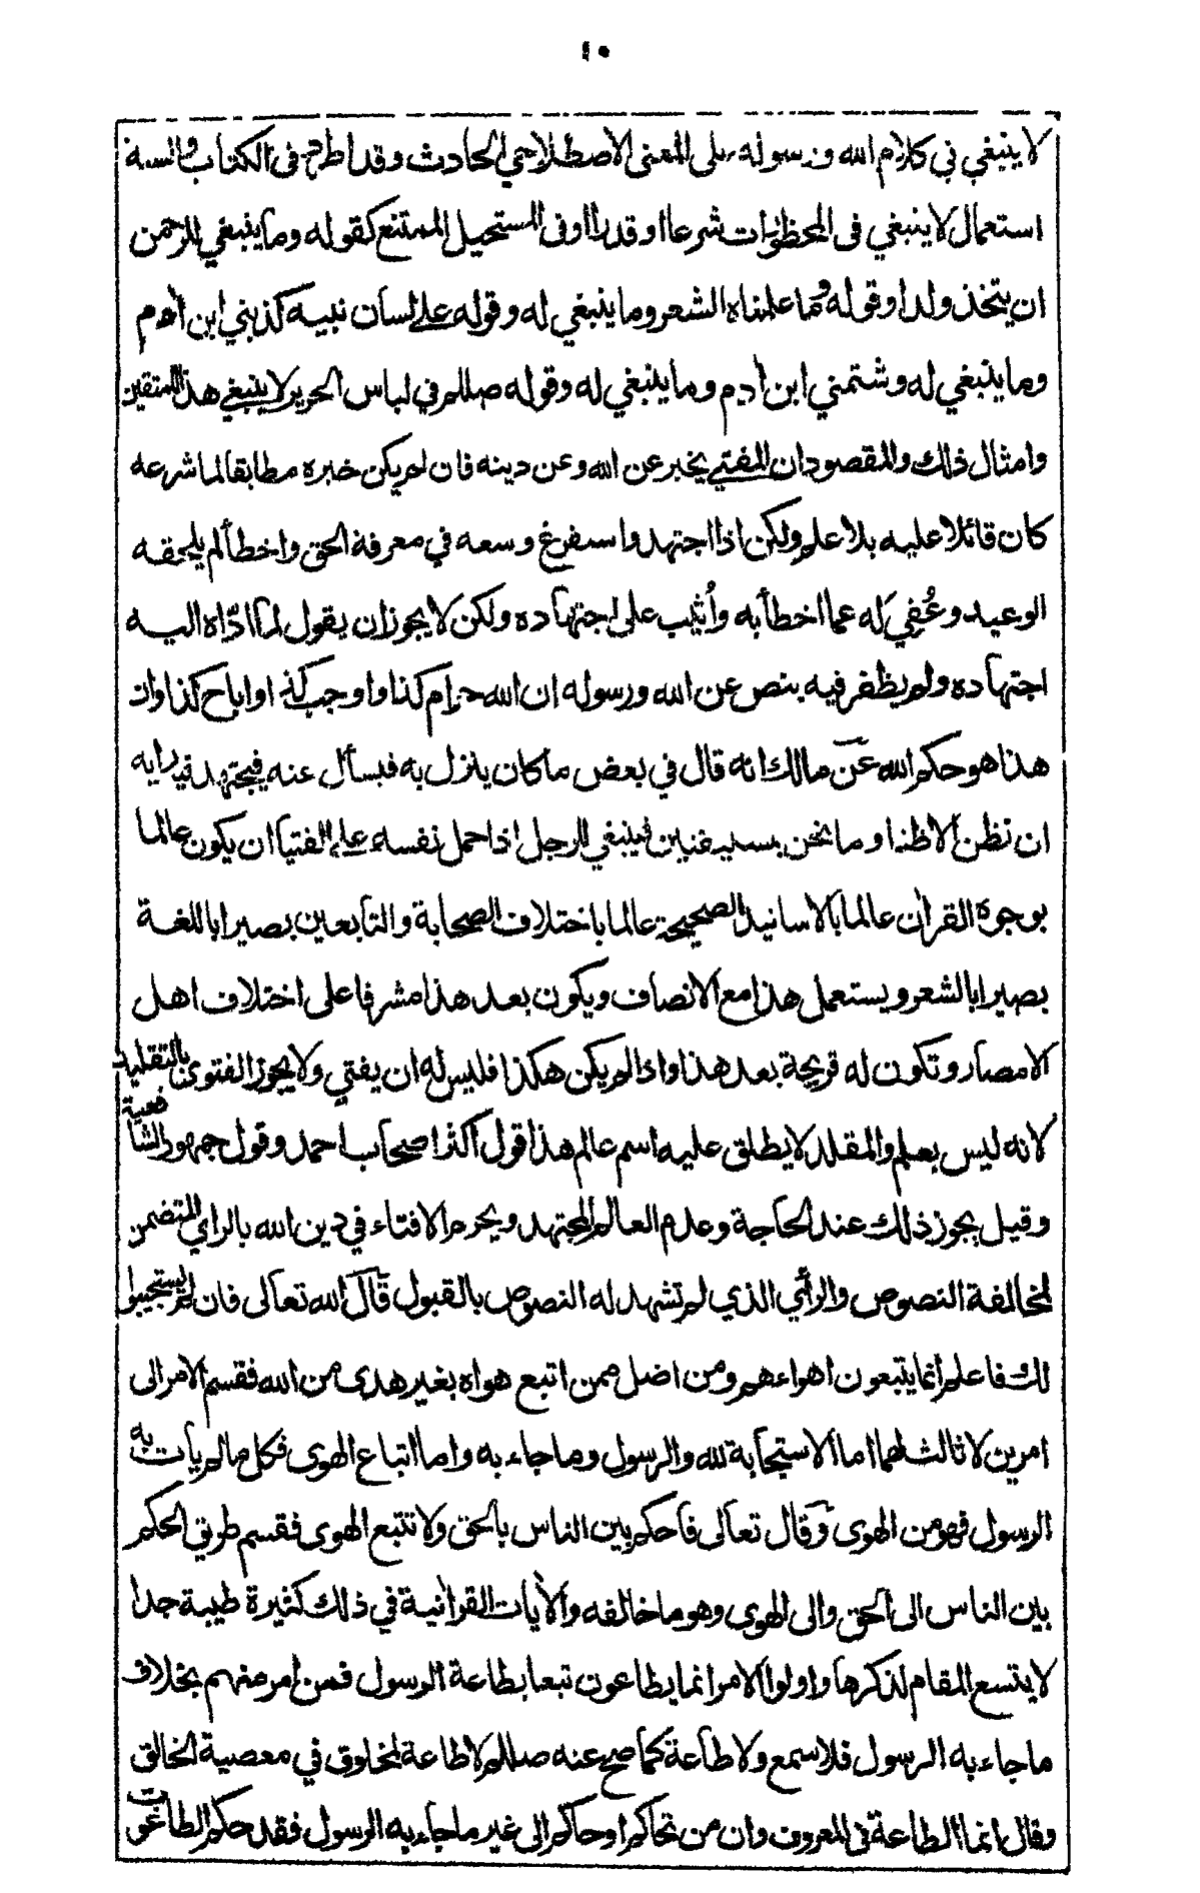 ١٠
لا ينبغي في كلام الله ورسوله على المعنى الاصطلاحي الحادث وقد اطرد في الكتاب والسنة
استعمال لا ينبغي في المحظورات شرعا او قدرا او في المستحيل الممتنع كقوله وما ينبغي للرحمن
ان يتخذ ولدا وقوله وما علمناه الشعر وما ينبغي له وقوله على لسان نبيه كذبني ابن اٰدم
وما ينبغي له وشتمني ابن اٰدم وما ينبغي له وقوله صللم في لباس الحرير لا ينبغي هذا للمتقين
وامثال ذلك والمقصود ان المفتي يخبر عن الله وعن دينه فان لم يكن خبره مطابقا لما شرعه
كان قائلا عليه بلا علم ولكن اذا اجتهد واستفرغ وسعه في معرفة الحق واخطأ لم يلحقه
الوعيد وعُفِي له عما اخطأ به وأُثيب على اجتهاده ولكن لا يجوز ان يقول لما ادّاه اليه
اجتهاده ولم يظفر فيه بنص عن الله ورسوله ان الله حرام كذا واوجب كذا او اباح كذا وان
هذا هو حكم الله عن مالك انه قال في بعض ما كان ينزل به فيسأل عنه فيجتهد فيه رايه
ان نظن الا ظنا وما نحن بمستيقنين فينبغي للرجل اذا حمل نفسه على الفتيا ان يكون عالما
بوجوه القراٰن عالما بالاسانيد الصحيحة عالما باختلاف الصحابة والتابعين بصيرا باللغة
بصيرا بالشعر ويستعمل هذا مع الانصاف ويكون بعد هذا مشرفا على اختلاف اهل
الامصار وتكون له قريحة بعد هذا واذا لم يكن هكذا فليس له ان يفتي ولا يجوز الفتوى بالتقليد
لانه ليس بعلم والمقلد لا يطلق عليه اسم عالم هذا قول اكثر اصحاب احمد وقول جمهور الشافعية
وقيل يجوز ذلك عند الحاجة وعدم العالم المجتهد ويحرم الافتاء في دين الله بالراي المتضمن
لمخالفة النصوص والرأي الذي لم تشهد له النصوص بالقبول قال الله تعالى فان لم يستجيبوا
لك فاعلم انما يتبعون اهواءهم ومن اضل ممن اتبع هواه بغير هدى من الله فقسم الامر الى
امرين لا ثالث لهما اما الاستجابة لله والرسول وما جاء به واما اتباع الهوى فكل ما لم يات به
الرسول فهو من الهوى وقال تعالى فاحكم بين الناس بالحق ولا تتبع الهوى فقسم طريق الحكم
بين الناس الى الحق والى الهوى وهو ما خالفه والاٰيات القراٰنية في ذلك كثيرة طيبة جدا
لا يتسع المقام لذكرها واولوا الامر انما يطاعون تبعا بطاعة الرسول فمن امر منهم بخلاف
ما جاء به الرسول فلا سمع ولا طاعة كما صح عنه صللم لا طاعة لمخلوق في معصية الخالق
وقال انما الطاعة في المعروف وان من تحاكم او حاكم الى غير ما جاء به الرسول فقد حكم الطاغوت